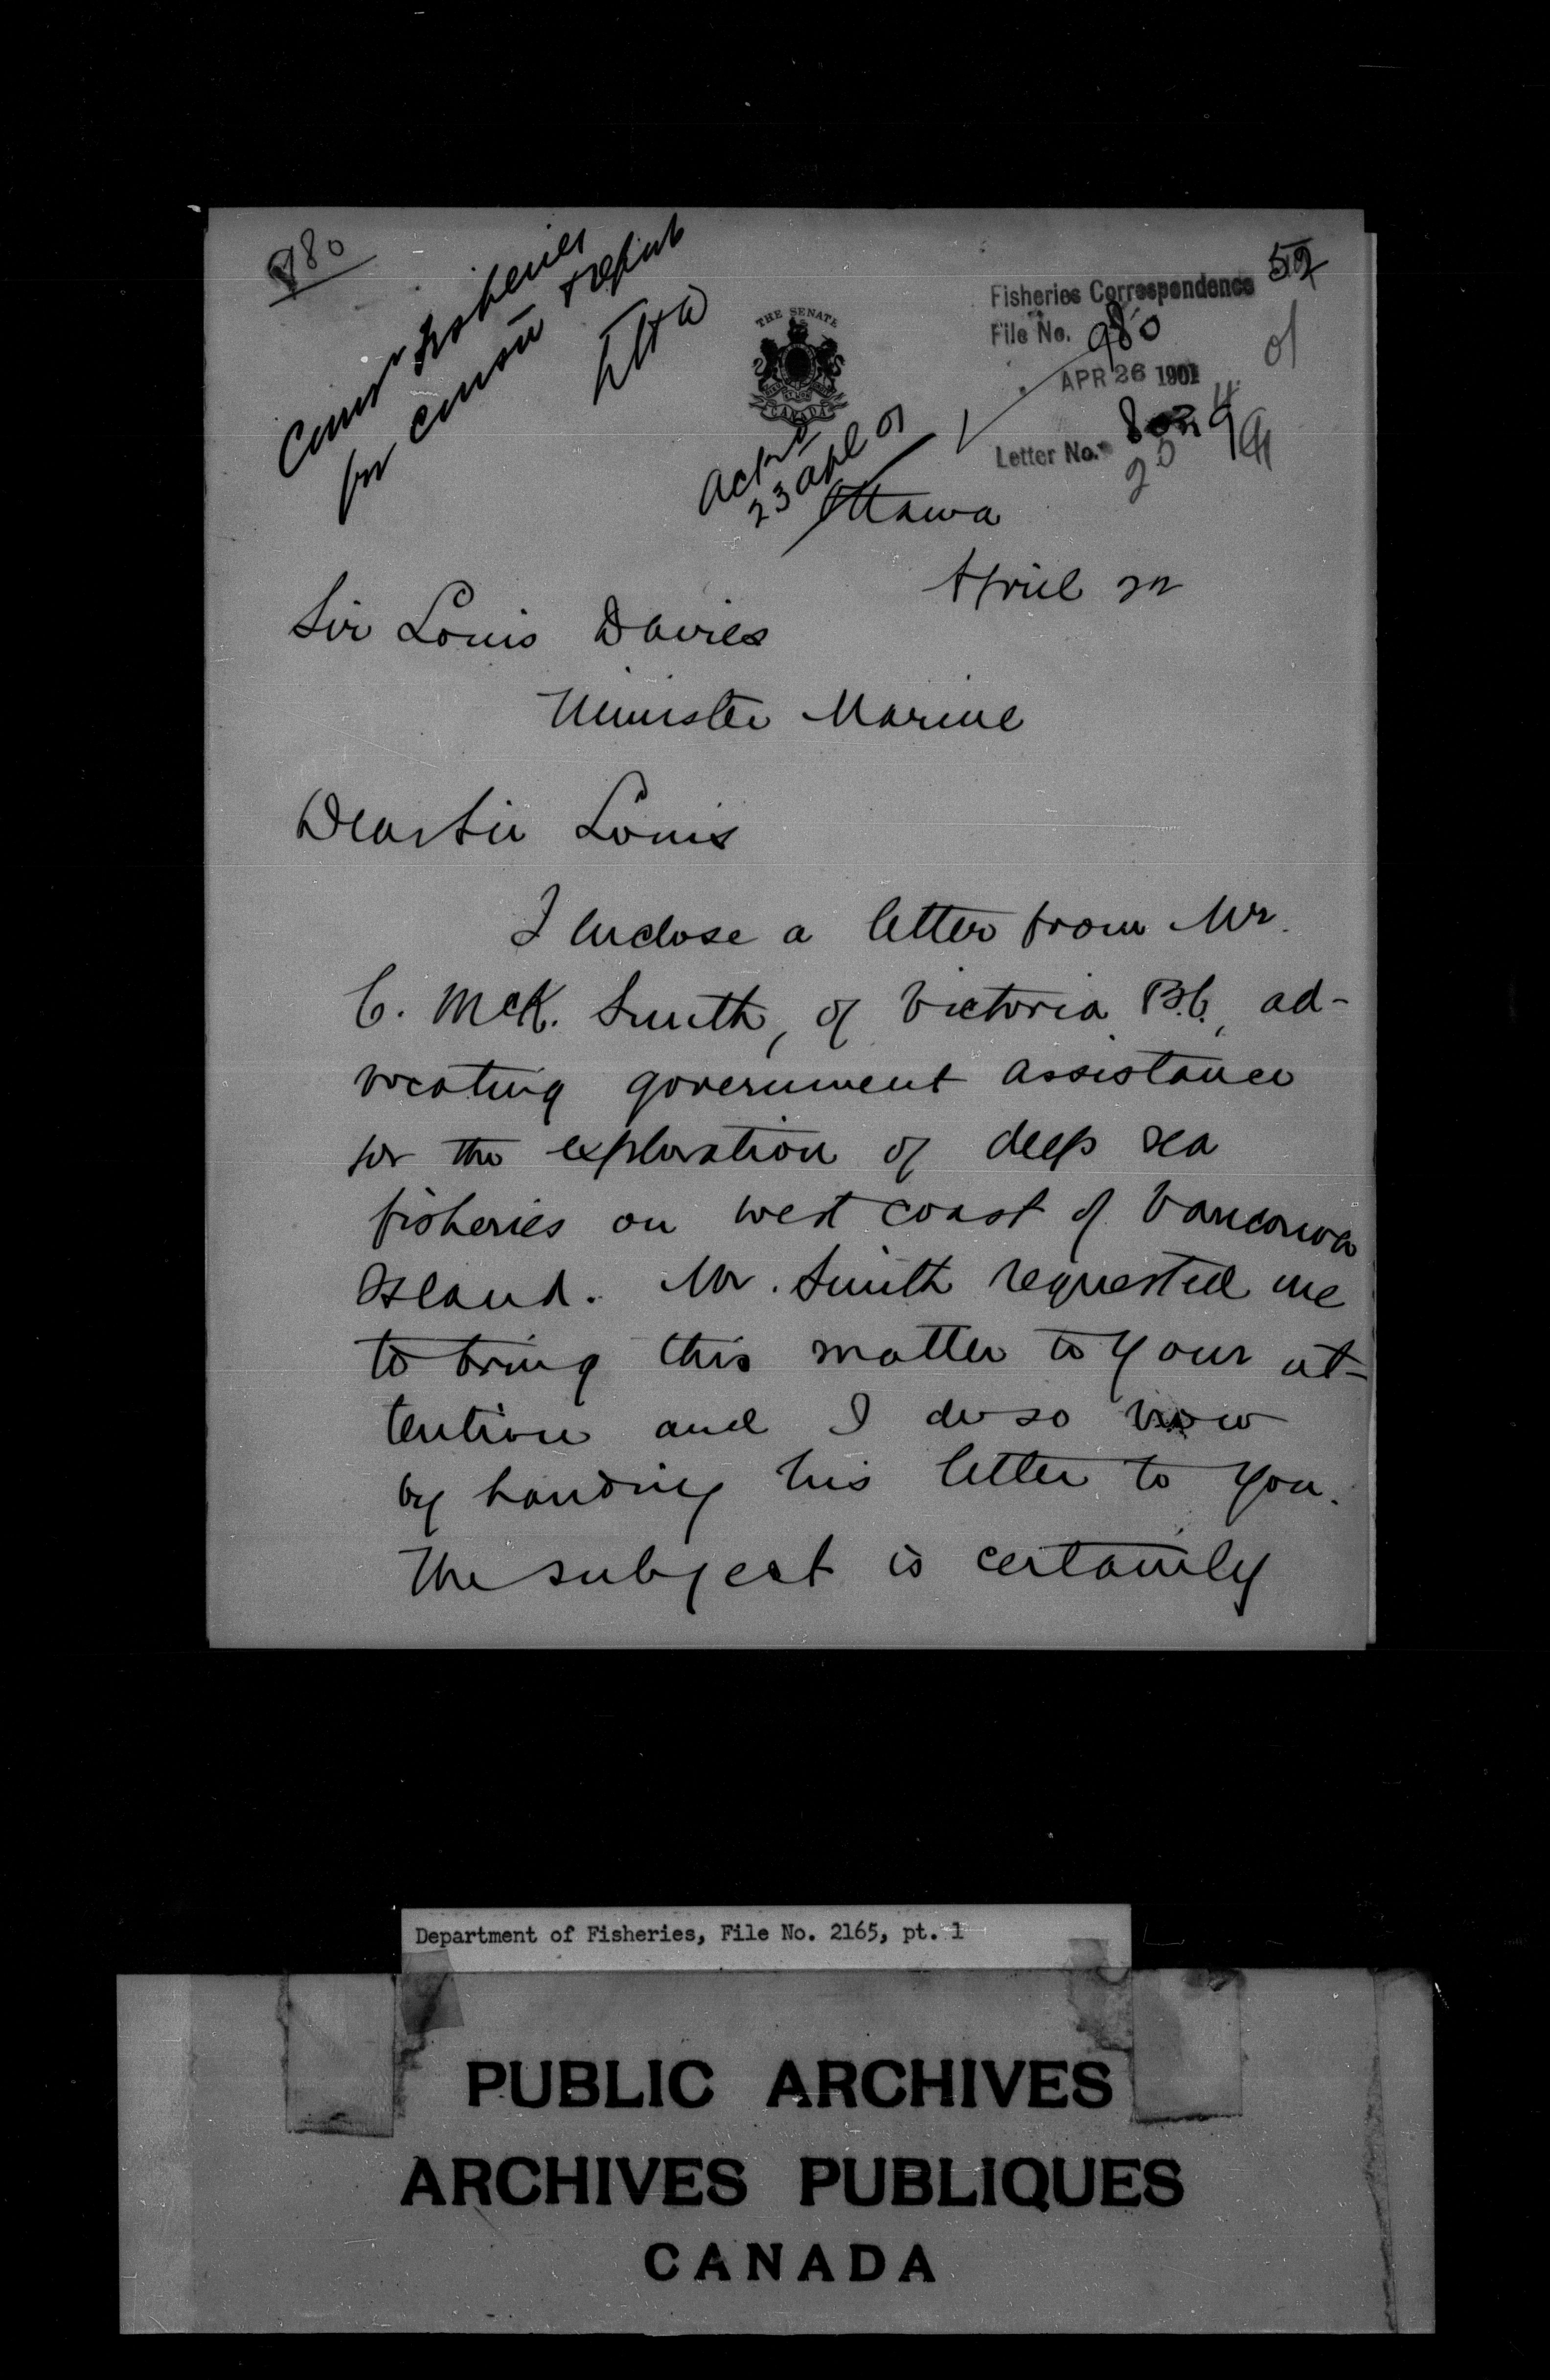 980
Comr Fisheries
for consn & report
THE SENATE
CANADA
Fisheries Correspondence
File No. 980
APR 26 1901
Letter No.
52
01
Ackd
23 Apl 01
Ottawa
April 22
Sir Louis Davies
Minister Marine
Dear Sir Louis
I enclose a letter from Mr.
C. McK. Smith, of Victoria B.C., ad-
vocating government assistance
for the exploration of deep sea
fisheries on west coast of Vancouver
Island. Mr. Smith requested me
to bring this matter to your at-
tention and I do so now
by handing his letter to you.
The subject is certainly
Department of Fisheries, File No. 2165, pt. 1
PUBLIC ARCHIVES
ARCHIVES PUBLIQUES
CANADA